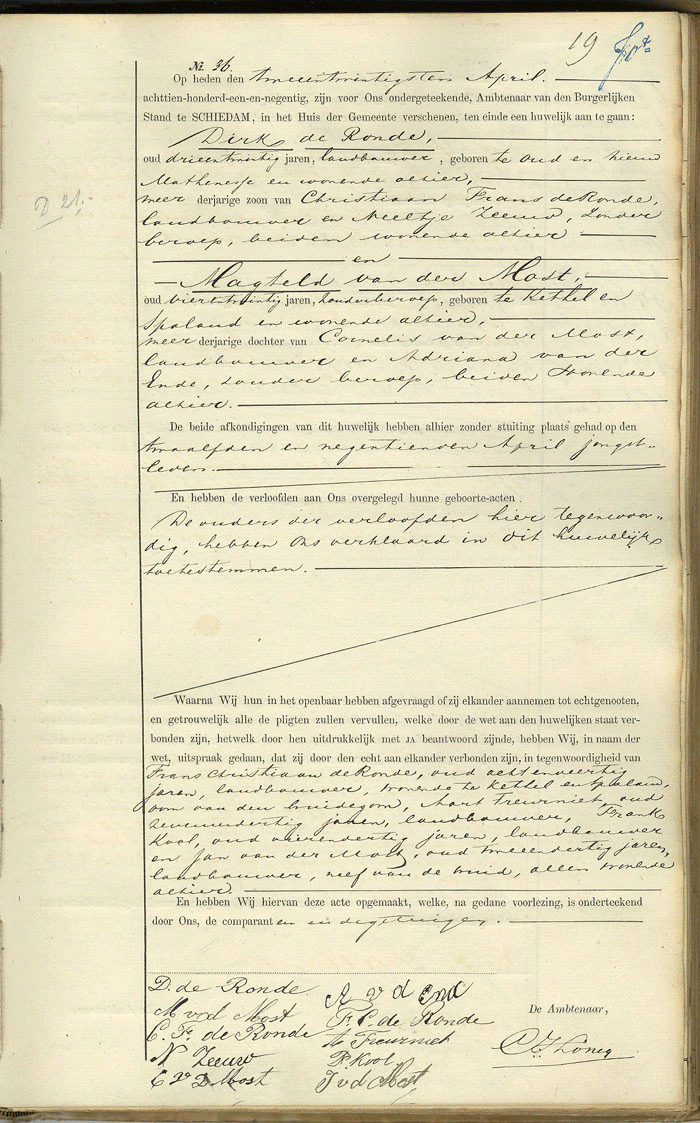 19
No. 36.
Op heden den tweeentwintigsten April.
achttien-honderd-een-en-negentig, zijn voor Ons ondergeteekende, Ambtenaar van den Burgerlijken
Stand te SCHIEDAM, in het Huis der Gemeente verschenen, ten einde een huwelijk aan te gaan:
Dirk de Ronde,
oud drieentwintig jaren, landbouwer, geboren te Oud en Nieuw
Mathenesse en wonende alhier,
meer derjarige zoon van Christiaan Frans de Ronde,
landbouwer en Neeltje Zeeuw, zonder
beroep, beiden wonende alhier
en
Magteld van der Most,
oud vierentwintig jaren, zonder beroep, geboren te Kethel en
Spaland en wonende alhier,
meer derjarige dochter van Cornelis van der Most,
landbouwer en Adriana van der
Ende, zonder beroep, beiden wonende
alhier.
D 21,-
De beide afkondigingen van dit huwelijk hebben alhier zonder stuiting plaats gehad op den
twaalfden en negentienden April jongst-
leden.
En hebben de verloofden aan Ons overgelegd hunne geboorte-acten.
De ouders der verloofden hier tegenwoor-
dig, hebben Ons verklaard in dit huwelijk
toetestemmen.
Waarna Wij hun in het openbaar hebben afgevraagd of zij elkander aannemen tot echtgenooten,
en getrouwelijk alle de pligten zullen vervullen, welke door de wet aan den huwelijken staat ver-
bonden zijn, hetwelk door hen uitdrukkelijk met JA beantwoord zijnde, hebben Wij, in naam der
wet, uitspraak gedaan, dat zij door den echt aan elkander verbonden zijn, in tegenwoordigheid van
Frans Christiaan de Ronde, oud achtenveertig
jaren, landbouwer, wonende te Kethel en Spaland,
oom van den bruidegom, Aart Treurniet, oud
zevenendertig jaren, landbouwer, Frank
Kool, oud vierendertig jaren, landbouwer
en Jan van der Most, oud tweeendertig jaren,
landbouwer, neef van de bruid, allen wonende
alhier.
En hebben Wij hiervan deze acte opgemaakt, welke, na gedane voorlezing, is onderteekend
door Ons, de comparanten en de getuigen.
D. de Ronde
A v d End
M v d Most
F. C. de Ronde
De Ambtenaar,
C. F. de Ronde
A Treurniet
N Zeeuw
F Kool
C v D Most
J v d Most